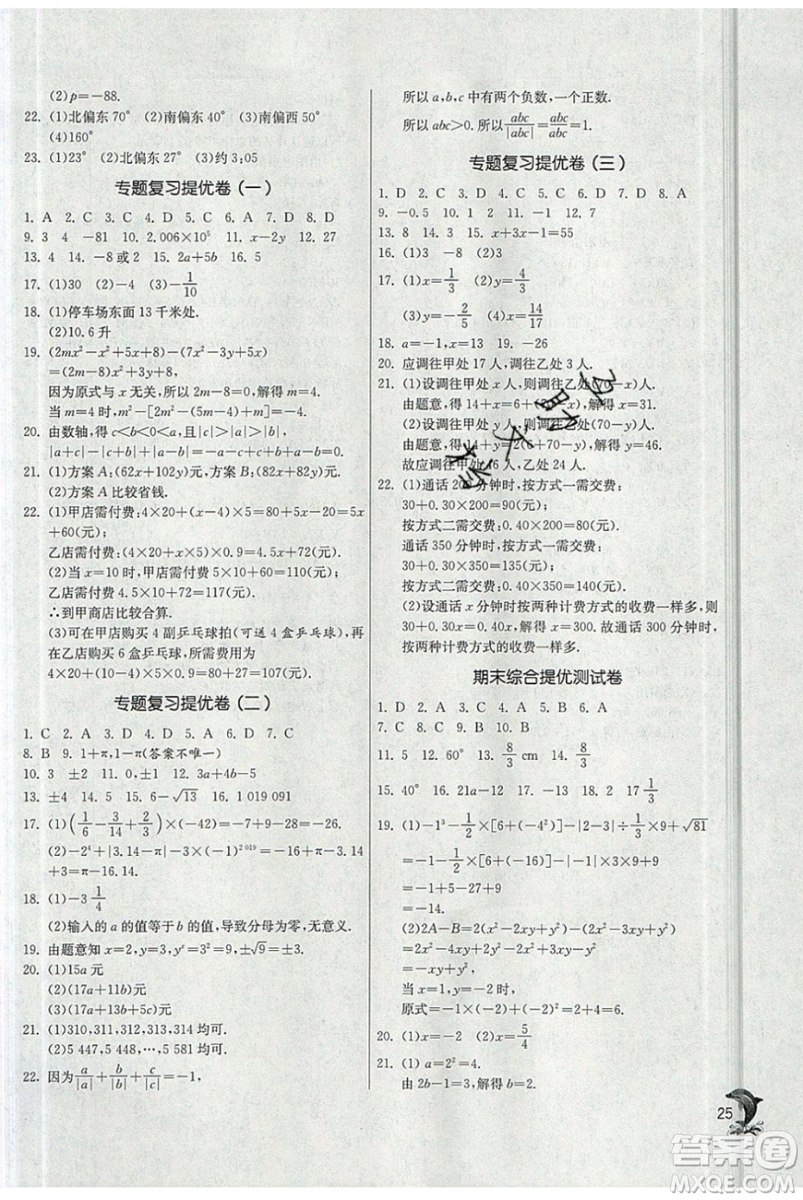 (2)p=-88.
22. (1)北偏东 70° (2)南偏东 40° (3)南偏西 50°
(4)160°
23. (1)23° (2)北偏东 (3)约 3:05
专题复习提优卷(一)
1. A 2. C 3. C 4. D 5. C 6. D 7. D 8. D
9. 3 4 -81 10. 2.006×10⁵ 11. x-2y 12. 27
13. 4 14. -8或2 15. 2a+5b 16. 5
17. (1)30 (2)-4 (3)-1/10
18. (1)停车场东面 13 千米处.
(2)10.6 升
19. (2mx²-x²+5x+8)-(7x²-3y+5x)
=(2m-8)x²+3y+8,
因为原式与 x 无关,所以 2m-8=0,解得 m=4.
当 m=4 时,m²-[2m²-(5m-4)+m]=-4.
20. 由数轴,得 c<b<0<a,且|c|>|a|>|b|,
|a+c|-|a-b|+|b+c|-|b|=-a+b-2c.
21. (1)方案 A:(62x+102y)元,方案 B:(82x+72y)元.
(2)方案 A 比较省钱.
22. (1)甲店需付费:4×20+(x-4)×5=80+5x-20=(5x+60)(元);
乙店需付费:(4×20+x×5)×0.9=(4.5x+72)(元).
(2)当 x=10 时,甲店需付费 5×10+60=110(元);
乙店需付费 4.5×10+72=117(元).
∴到甲商店比较合算.
(3)可在甲店购买 4 副乒乓球拍(可送 4 盒乒乓球),再在乙店购买 6 盒乒乓球,所需费用为
4×20+(10-4)×5×0.9=80+27=107(元).
专题复习提优卷(二)
1. C 2. A 3. D 4. D 5. A 6. D 7. C
8. B 9. 1+π,1-π(答案不唯一)
10. 3 ±2 11. ±2 12. 3a+4b-5
13. ±4 14. 5 15. 6-√13 16. 1 019 091
17. (1)(1/6-3/14+2/3)×(-42)=-7+9-28=-26.
(2)-2⁴+|3.14-π|×(-1)²⁰¹⁹=-16+π-3.14
+3=π-16.14.
18. (1)-3 1/4
(2)输入的 a 的值等于 b 的值,导致分母为零,无意义.
19. 由题意知 x=2,y=3,x²+y²-4=9,±√9=±3.
20. (1)15a元
(2)(17a+11b)元
(3)(17a+13b+5c)元
21. (1)310,311,312,313,314 均可.
(2)5 447,5 448,…,5 581 均可.
22. 因为a/|a|+b/|b|+c/|c|=-1,
所以 a,b,c 中有两个负数,一个正数.
所以 abc>0. 所以abc/|abc|=abc/abc=1.
专题复习提优卷(三)
1. D 2. C 3. D 4. A 5. C 6. B 7. D 8. A
9. -0.5 10. 1 2 11. -1 12. 7
13. 8 14. 3 15. x+3x-1=55
16. (1)3 -8 (2)3
17. (1)x=1/3 (2)y=4/3
(3)y=-2/5 (4)x=14/17
18. a=-1,x=13 19. -26
20. 应调往甲处 17 人,调往乙处 3 人.
21. (1)设调往甲处 x 人,则调往乙处(70-x)人.
由题意,得 14+x=6+(70-x),解得 x=31.
(2)设调往甲处 y 人,则调往乙处(70-y)人.
由题意,得 14+y=2(6+70-y),解得 y=46.
故应调往甲处 46 人,乙处 24 人.
22. (1)通话 200 分钟时,按方式一需交费:
30+0.30×200=90(元);
按方式二需交费:0.40×200=80(元);
通话 350 分钟时,按方式一需交费:
30+0.30×350=135(元);
按方式二需交费:0.40×350=140(元).
(2)设通话 x 分钟时按两种计费方式的收费一样多,则 30+0.30x=0.40x,解得 x=300. 故通话 300 分钟时,按两种计费方式的收费一样多.
期末综合提优测试卷
1. D 2. D 3. C 4. A 5. D 6. A
7. C 8. C 9. B 10. B
11. 5 12. 60° 13. 8/3 cm 14. 8/3
15. 40° 16. 21a-12 17. -13 18. 2 17 1/3
19. (1)-1³-1/2×[6+(-4²)]-|2-3|÷1/3×9+√81
=-1-1/2×[6+(-16)]-|-1|×3×9+9
=-1+5-27+9
=-14.
(2)2A-B=2(x²-xy+y²)-(-2xy+y²)
=2x²-2xy+2y²+2xy-y²
=2x²+y².
当 x=-1,y=2 时,
原式=2×(-1)²+2²=2+4=6.
20. (1)x=-2 (2)x=5/4
21. (1) a=2²=4.
由 2b-1=3,解得 b=2.
25
答案圈
MXQE.COM